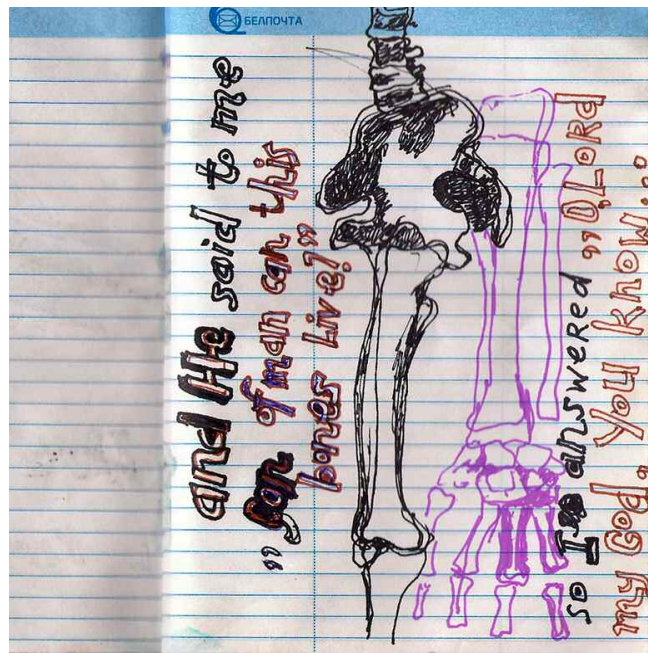 БЕЛПОЧТА
and He said to me
„Son of man can this
bones live?”
so I answered „O, Lord
my God, you know...